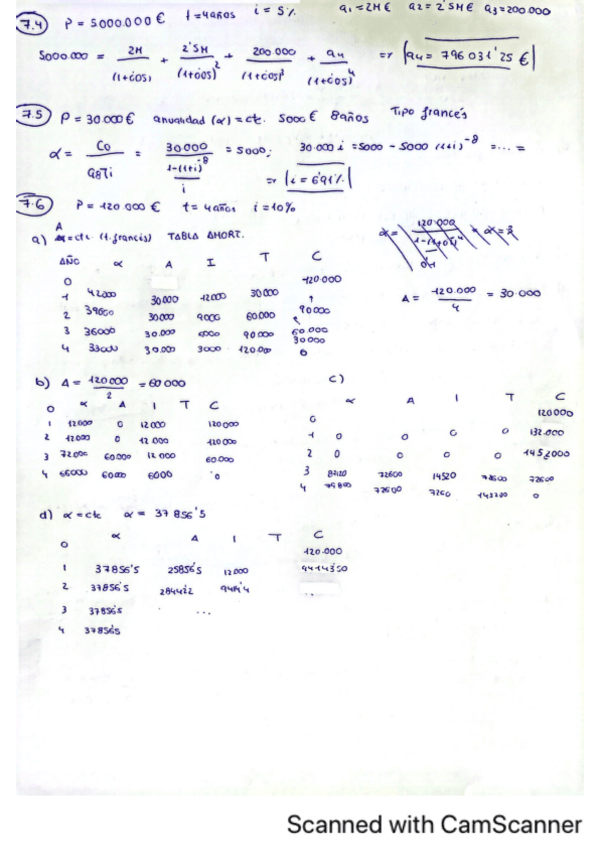 7.4 P = 5000.000 € t = 4 años i = 5% a1 = 2M € a2 = 2'5M € a3 = 200.000
5000.000 = 2M/(1+0'05) + 2'5M/(1+0'05)² + 200.000/(1+0'05)³ + a4/(1+0'05)⁴ => a4 = 796 031'25 €
7.5 P = 30.000 € anualidad (α) = cte. 5000 € 8 años Tipo francés
α = C0/a8¬i = 30.000/((1-(1+i)⁻⁸)/i) = 5000; 30.000 i = 5000 - 5000 (1+i)⁻⁸ = ... =
=> i = 6'91%
7.6 P = 120.000 € t = 4 años i = 10%
a) A = cte (t. francés) TABLA AMORT.
AÑO α A I T C
0 120.000
1 42000 30.000 12000 30.000 90000
2 39000 30.000 9000 60.000 60.000
3 36000 30.000 6000 90.000 30000
4 33000 30.000 3000 120.000 0
A = 120.000/4 = 30.000
b) A = 120000/2 = 60000
α A I T C
0
1 12000 0 12000 120.000
2 12000 0 12000 120.000
3 72000 60000 12000 60.000
4 66000 60000 6000 0
c)
α A I T C
0 120000
1 0 0 0 0 132.000
2 0 0 0 0 1452000
3 87120 72600 14520 72600 72600
4 79800 72600 7260 0
d) α = cte α = 37 856'5
α A I T C
0 120.000
1 37856'5 25856'5 12000
2 37856'5 9414'4 ..
3 37856'5 ...
4 37856'5
Scanned with CamScanner